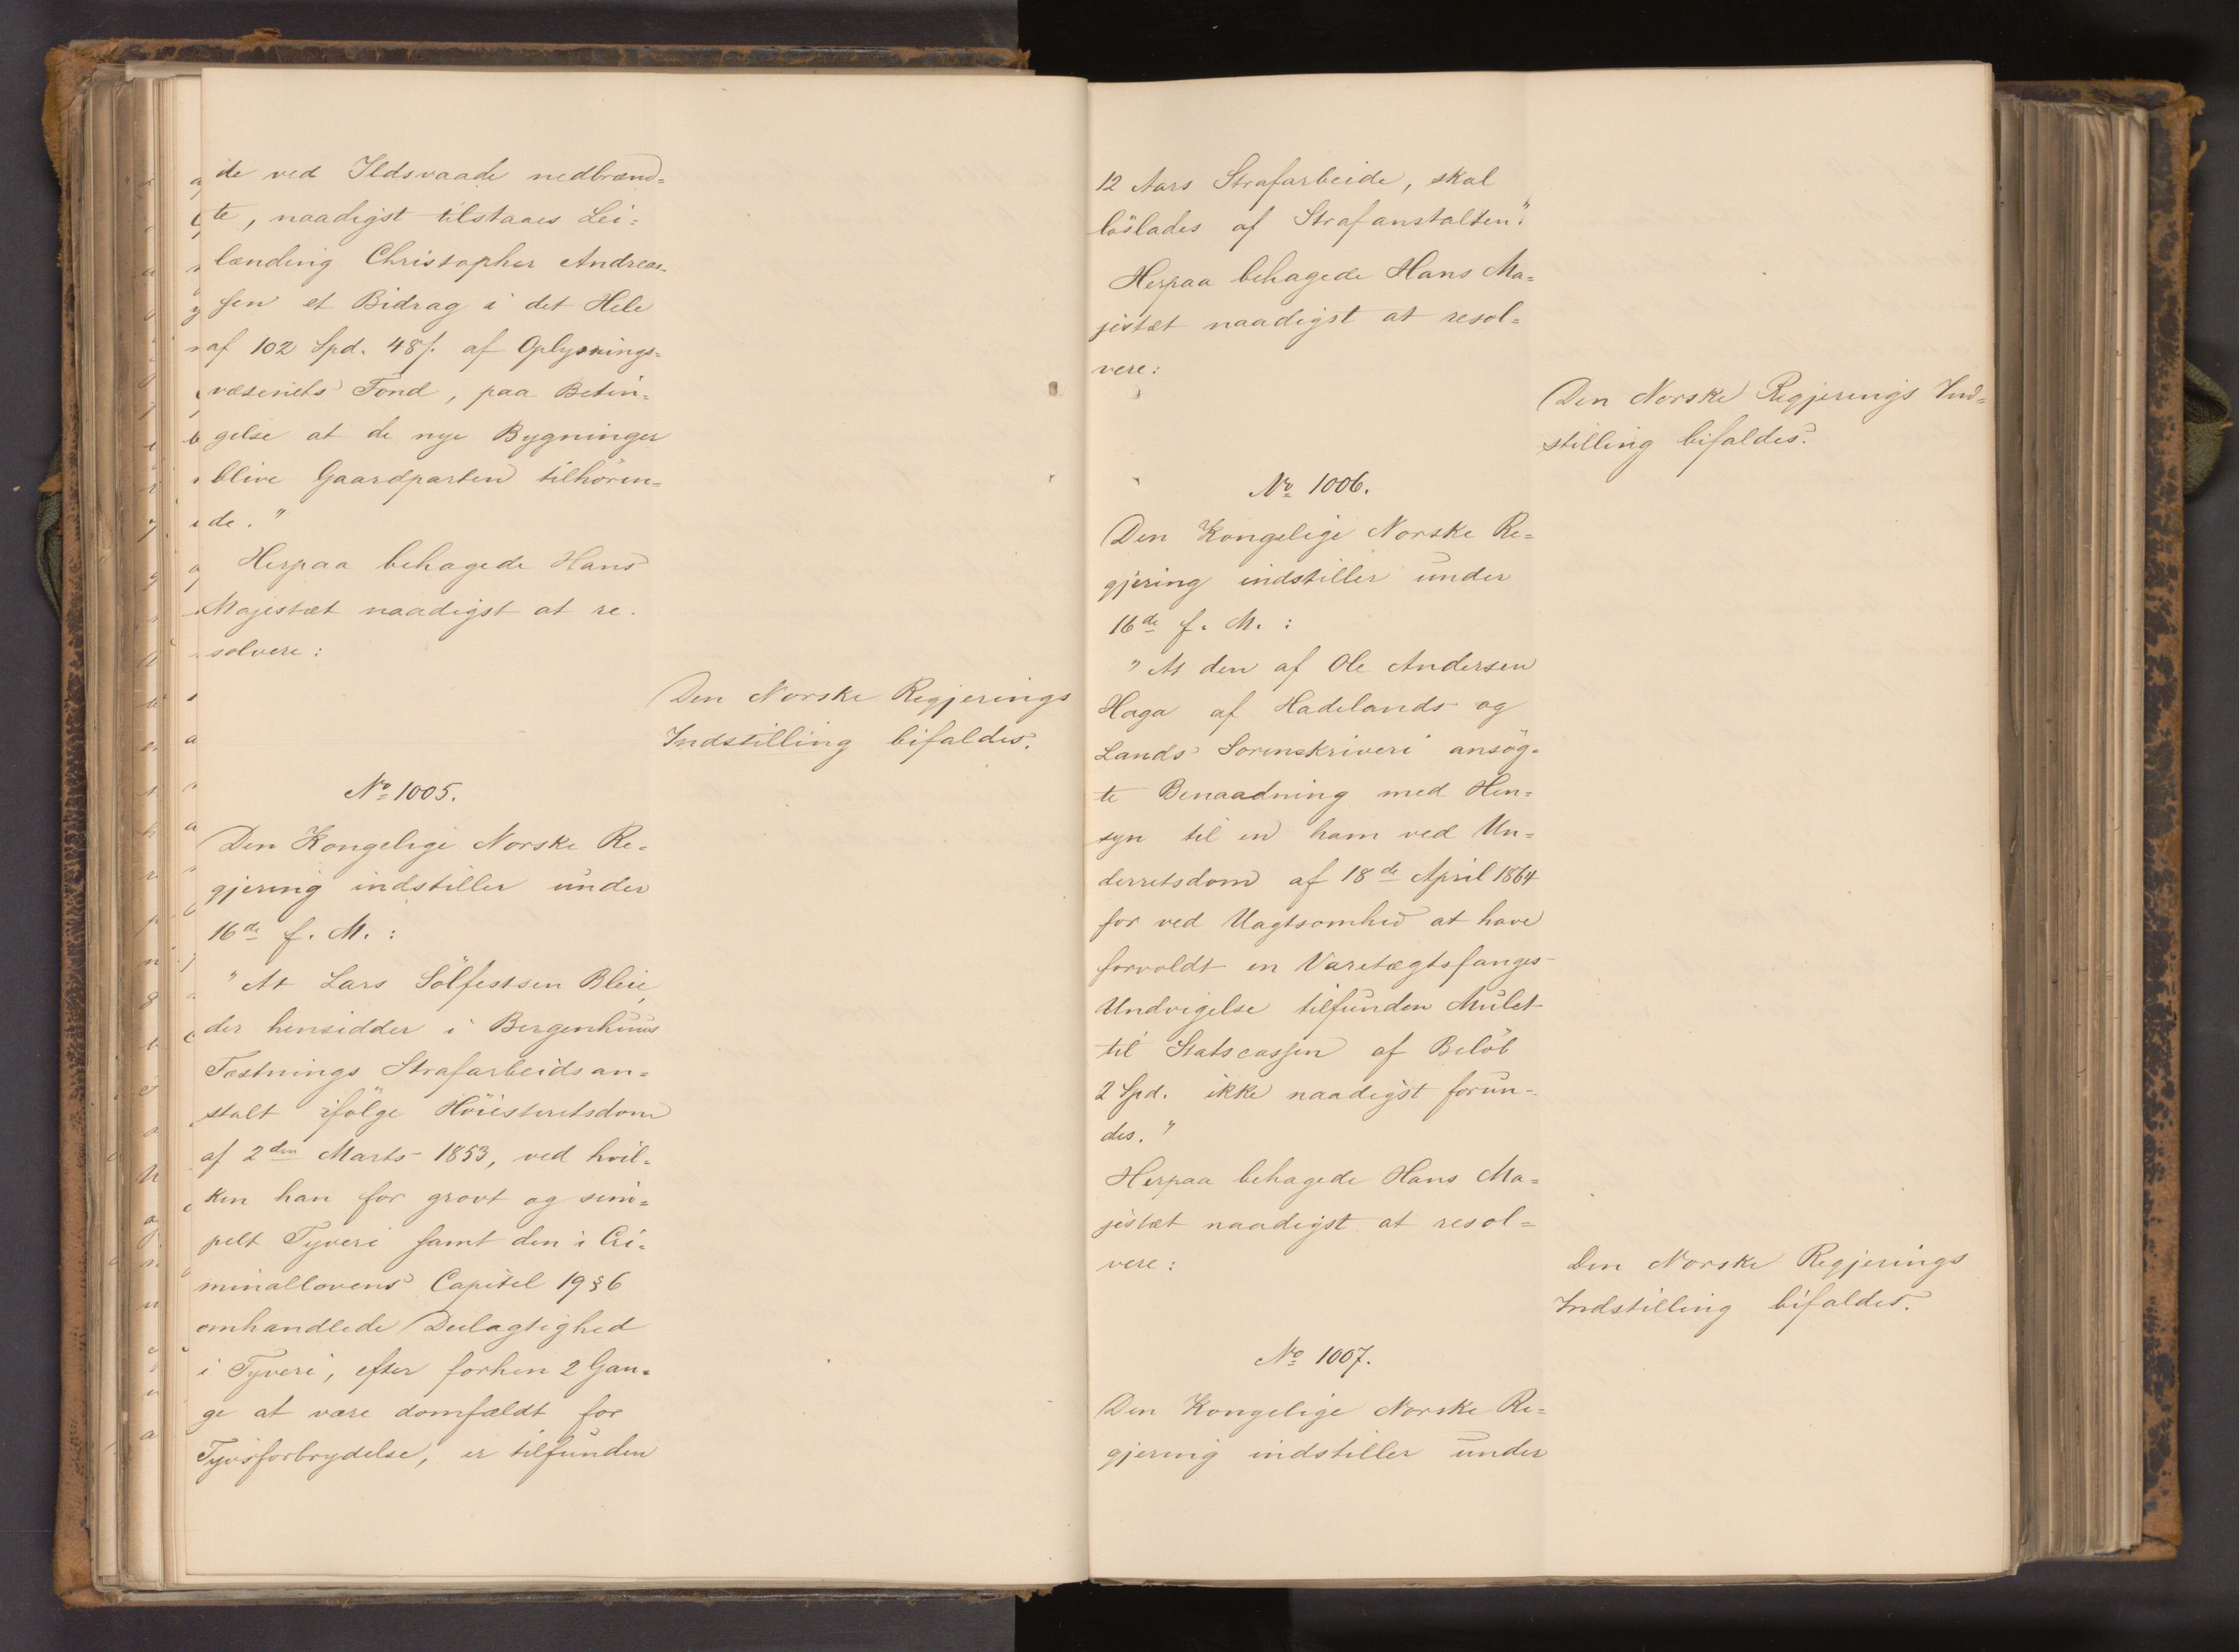 de ved Ildsvaade nedbrænd=
te, naadigst tilstaaes Lei=
lænding Christopher Andreas=
sen et Bidrag i det Hele
af 102 Spd. 48 s. af Oplysnings=
væsenets Fond, paa Betin=
gelse at de nye Bygninger
blive Gaardparten tilhören=
de."
Herpaa behagede Hans
Majestæt naadigst at re=
solvere:
Den Norske Regjerings
Indstilling bifaldes.
No 1005.
Den Kongelige Norske Re=
gjering indstiller under
16de f. M.:
"At Lars Sölfestsen Bleie,
der hensidder i Bergenhuus
Fæstnings Strafarbeidsan=
stalt ifölge Höiesteretsdom
af 2den Marts 1853, ved hvil=
ken han for grovt og sim=
pelt Tyveri samt den i Cri=
minallovens Capitel 19 § 6
omhandlede Deelagtighed
i Tyveri, efter forhen 2 Gan=
ge at være domfældt for
Tyvsforbrydelse, er tilfunden
12 Aars Strafarbeide, skal
löslades af Strafanstalten".
Herpaa behagede Hans Ma=
jestæt naadigst at resol=
vere:
Den Norske Regjerings Ind=
stilling bifaldes.
No 1006.
Den Kongelige Norske Re=
gjering indstiller under
16de f. M.:
"At den af Ole Andersen
Haga af Hadelands og
Lands Sorenskriveri ansög=
te Benaadning med Hen=
syn til en ham ved Un=
derretsdom af 18de April 1864
for ved Uagtsomhed at have
forvoldt en Varetægtsfanges
Undvigelse tilfunden Mulct
til Statscassen af Belöb
2 Spd. ikke naadigst forun=
des."
Herpaa behagede Hans Ma=
jestæt naadigst at resol=
vere:
Den Norske Regjerings
Indstilling bifaldes.
No 1007.
Den Kongelige Norske Re=
gjering indstiller under